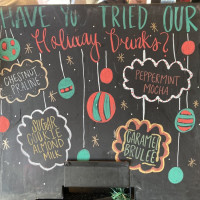 HAVE YOU TRIED OUR
Holiday Drinks?
CHESTNUT
PRALINE
PEPPERMINT
MOCHA
SUGAR
COOKIE
ALMOND
MILK
CARAMEL
BRULEE